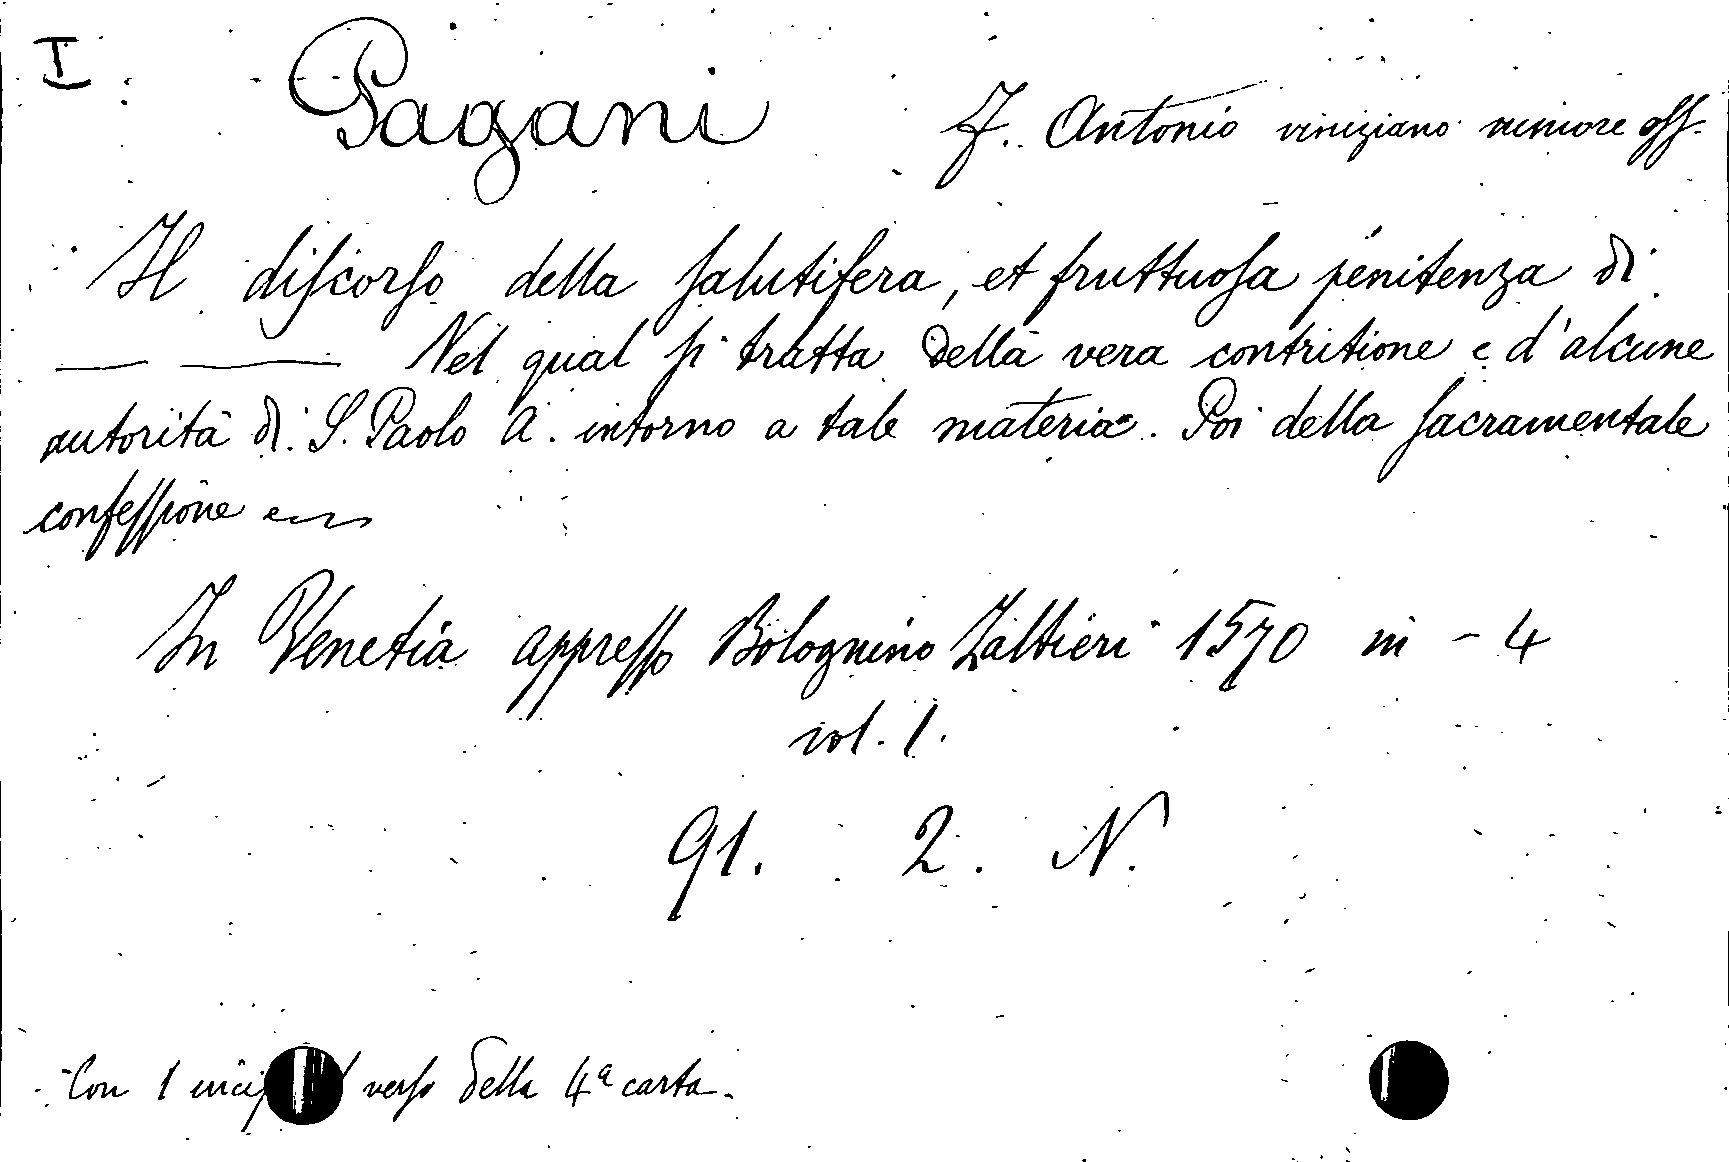 I
Pagani F. Antonio viniziano minore oss.
Il discorso della salutifera, et fruttuosa penitenza di
— — Nel qual si tratta della vera contritione e d'alcune
autorità di S. Paolo A. intorno a tale materia. Poi della sacramentale
confessione
In Venetia appresso Bolognino Zaltieri 1570 in - 4
vol. 1.
91. 2. N.
Con 1 verso della 4ª carta.